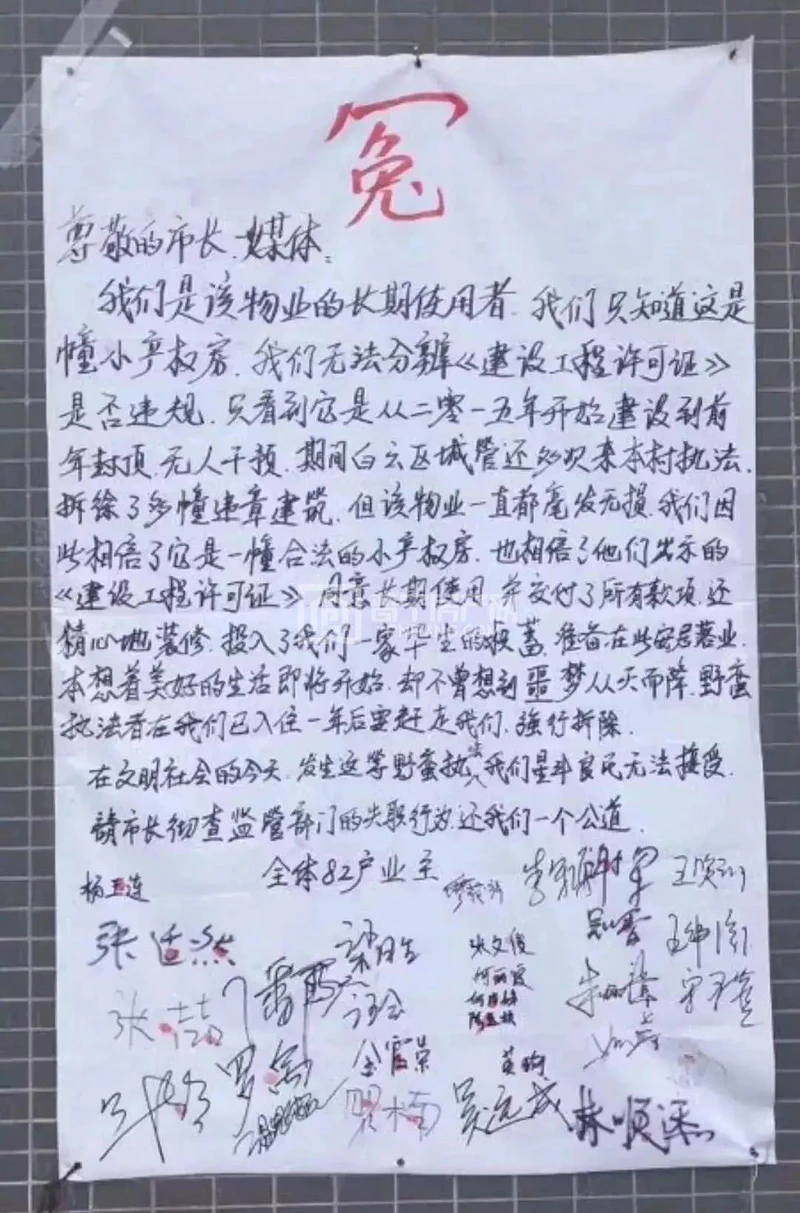 冤
尊敬的市长、媒体:
我们是该物业的长期使用者、我们只知道这是
幢小产权房、我们无法分辨《建设工程许可证》
是否违规、只看到它是从二零一五年开始建设到前
年封顶、无人干预、期间白云区城管还多次来本村执法、
拆除了多幢违章建筑、但该物业一直都毫发无损、我们因
此相信了它是一幢合法的小产权房、也相信了他们出示的
《建设工程许可证》同意长期使用、并交付了所有款项、还
精心地装修、投入了我们一家毕生的积蓄、准备在此安居落业、
本想着美好的生活即将开始、却不曾想到噩梦从天而降、野蛮
执法者在我们已入住一年后要赶走我们、强行拆除、
在文明社会的今天、发生这等野蛮执法、我们星斗良民无法接受、
请市长彻查监管部门的失职行为、还我们一个公道、
全体82户业主
杨玉连
张
张喆
罗
金霞荣
张文俊
何丽霞
黄驹
吴远成
林顺添